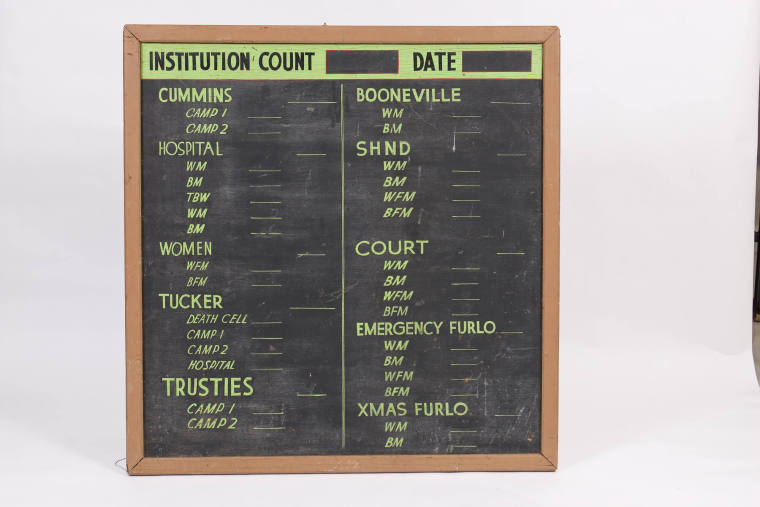 INSTITUTION COUNT DATE
CUMMINS
CAMP 1
CAMP 2
HOSPITAL
WM
BM
TBW
WM
BM
WOMEN
WFM
BFM
TUCKER
DEATH CELL
CAMP 1
CAMP 2
HOSPITAL
TRUSTIES
CAMP 1
CAMP 2
BOONEVILLE
WM
BM
SHND
WM
BM
WFM
BFM
COURT
WM
BM
WFM
BFM
EMERGENCY FURLO
WM
BM
WFM
BFM
XMAS FURLO
WM
BM